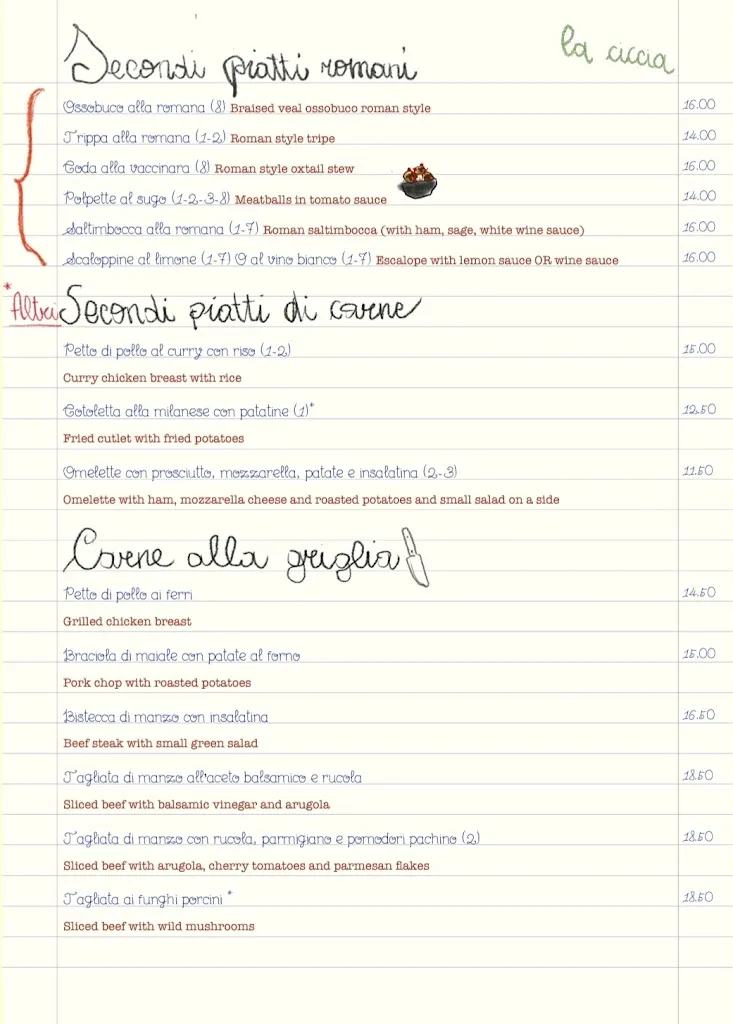 la ciccia
Secondi piatti romani
Ossobuco alla romana (8) Braised veal ossobuco roman style 16.00
Trippa alla romana (1-2) Roman style tripe 14.00
Coda alla vaccinara (8) Roman style oxtail stew 16.00
Polpette al sugo (1-2-3-8) Meatballs in tomato sauce 14.00
Saltimbocca alla romana (1-7) Roman saltimbocca (with ham, sage, white wine sauce) 16.00
Scaloppine al limone (1-7) O al vino bianco (1-7) Escalope with lemon sauce OR wine sauce 16.00
* Altri Secondi piatti di carne
Petto di pollo al curry con riso (1-2) 15.00
Curry chicken breast with rice
Cotoletta alla milanese con patatine (1)* 12.50
Fried cutlet with fried potatoes
Omelette con prosciutto, mozzarella, patate e insalatina (2-3) 11.50
Omelette with ham, mozzarella cheese and roasted potatoes and small salad on a side
Carne alla griglia
Petto di pollo ai ferri 14.50
Grilled chicken breast
Braciola di maiale con patate al forno 15.00
Pork chop with roasted potatoes
Bistecca di manzo con insalatina 16.50
Beef steak with small green salad
Tagliata di manzo all'aceto balsamico e rucola 18.50
Sliced beef with balsamic vinegar and arugola
Tagliata di manzo con rucola, parmigiano e pomodori pachino (2) 18.50
Sliced beef with arugola, cherry tomatoes and parmesan flakes
Tagliata ai funghi porcini * 18.50
Sliced beef with wild mushrooms